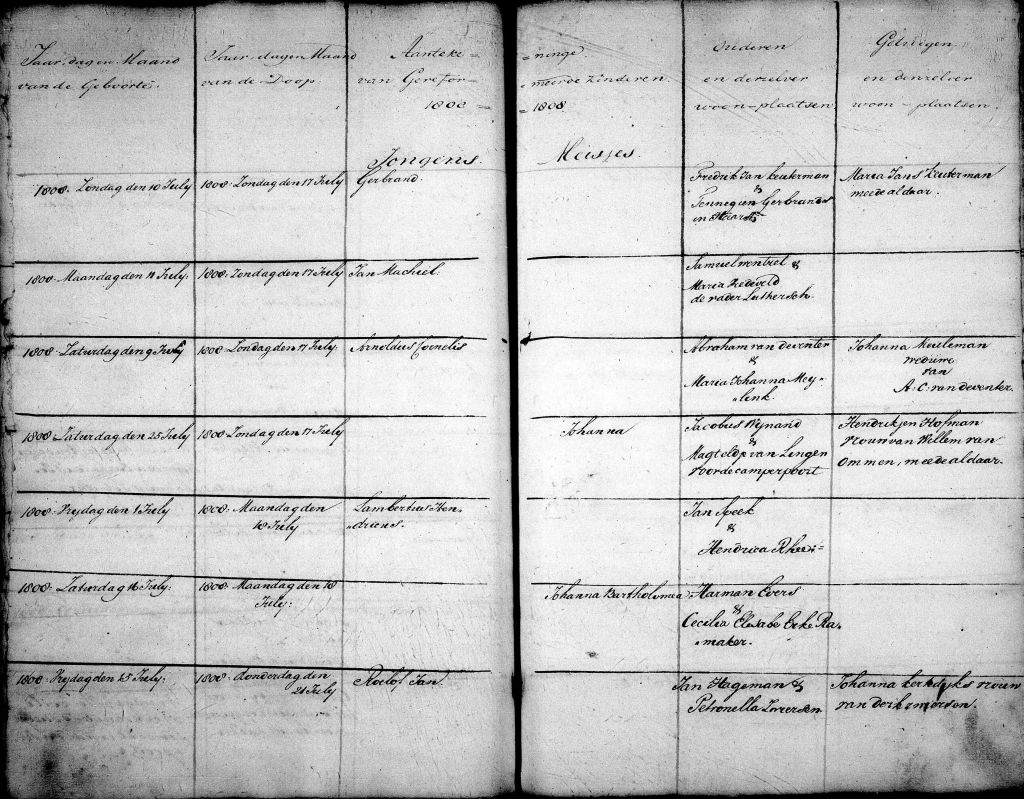 Jaar, dag en Maand
van de Geboorte.
Jaar, dag en Maand
van de Doop
Aanteke=
van Gerefor=
1808 =
=ninge
=meerde Kinderen.
= 1808.
Ouderen
en derzelver
woon-plaatsen
Getuigen
en derzelver
woon-plaatsen.
Jongens.
Meisjes.
1808. Zondag den 10 July
1808. Zondag den 17 July
Gerbrand.
Fredrik Jan Keuterman
&
Tennegien Gerbrands
in
Maria Jans Keuterman
meede aldaar.
1808. Maandag den 11 July.
1808. Zondag den 17 July
Jan Machiel.
Samuel &
Maria
de vader Luthersch.
1808. Zaturdag den 9 July
1808. Zondag den 17 July.
Arnoldus Cornelis
Abraham van deventer
&
Maria Johanna Mey„
„link.
Johanna Meuleman
weduwe
van
A: C: van deventer.
1808. Zaturdag den 25 July
1808. Zondag den 17 July
Johanna
Jacobus Wijnand
&
Magteldje van Lingen
voor de camperpoort
Hendrikjen Hofman
vrouw van Willem van
Ommen, meede aldaar.
1808. Vrydag den 1 July
1808. Maandag den
18 July
Lambertus Hen„
„dricus.
Jan Speek
&
Hendrica
1808. Zaturdag 16 July.
1808. Maandag den 18
July.
Johanna Bartholomea
Harman Evers
&
Cecilia Elisabe Ra„
„maker.
1808. Vrydag den 15 July.
1808. donderdag den
21 July
Roelof Jan.
Jan Hageman &
Petronella
Johanna kerkdyks vrouw
van